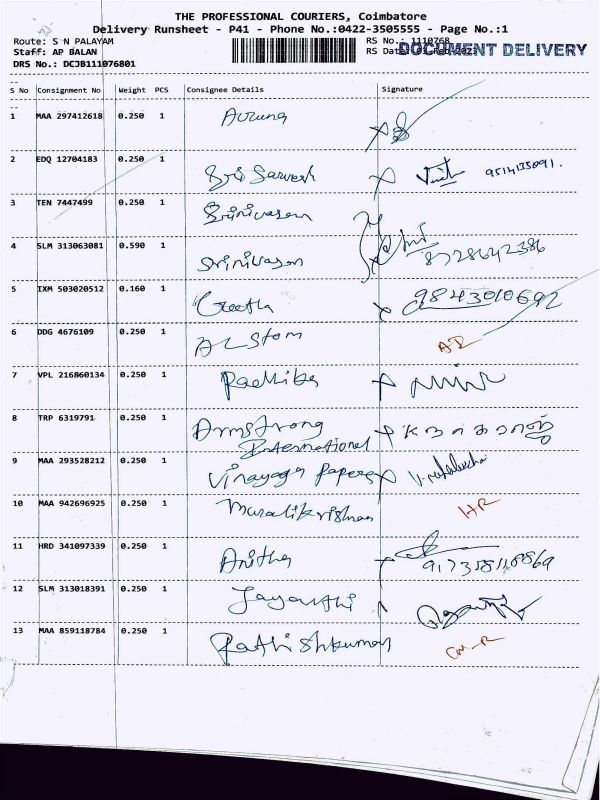 THE PROFESSIONAL COURIERS, Coimbatore
Delivery Runsheet - P41 - Phone No.:0422-3505555 - Page No.:1
Route: S N PALAYAM RS No.: 1110768
Staff: AP BALAN RS Dat DOCUMENT DELIVERY
DRS No.: DCJB111076801
S No Consignment No Weight PCS Consignee Details Signature
1 MAA 297412618 0.250 1 Aruna
2 EDQ 12704183 0.250 1 Sri Sarvesh
3 TEN 7447499 0.250 1 Srinivasan
4 SLM 313063081 0.590 1 Srinivasan 8728642386
5 IXM 503020512 0.160 1 Geetha 9843010692
6 DDG 4676109 0.250 1 ALstom
7 VPL 216860134 0.250 1 Radhika
8 TRP 6319791 0.250 1 Armstrong
International
9 MAA 293528212 0.250 1 Vinayaga papers
10 MAA 942696925 0.250 1 Muralikrishnan HR
11 HRD 341097339 0.250 1 Anitha
12 SLM 313018391 0.250 1 Jayanthi
13 MAA 859118784 0.250 1 Rathishkumar